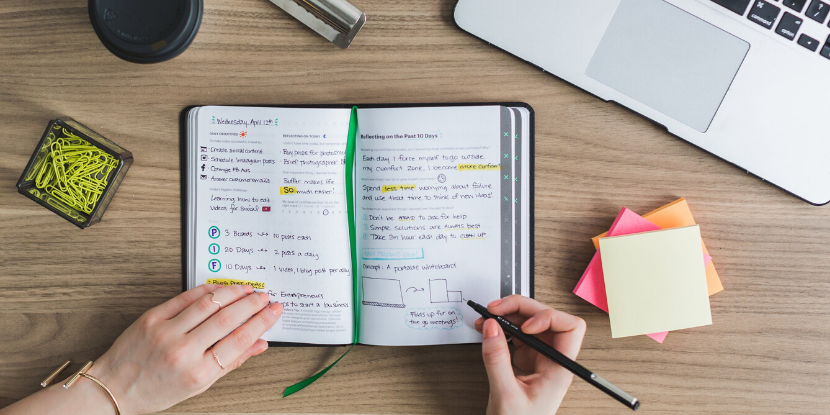 Wednesday, April 12th
Create social content
Schedule Instagram posts
Change FB Ads
Answer customer emails
Learning how to edit
videos for social!
P 3 Boards → 10 posts each
I 20 Days → 2 posts a day
F 10 Days → 1 video, 1 blog post per day
Blog Post Ideas
for Entrepreneurs
to start a business
Buy prize for
Brief photographer
Buffer makes life
so much easier!
Reflecting on the Past 10 Days
Each day I force myself to go outside
my comfort zone, I become more confident
Spend less time worrying about failure
and use that time to think of new ideas!
Don't be afraid to ask for help
Simple solutions are always best
Take 1 hour each day to catch up
Concept: A portable whiteboard
Folds up for on
the go meetings!
command
option